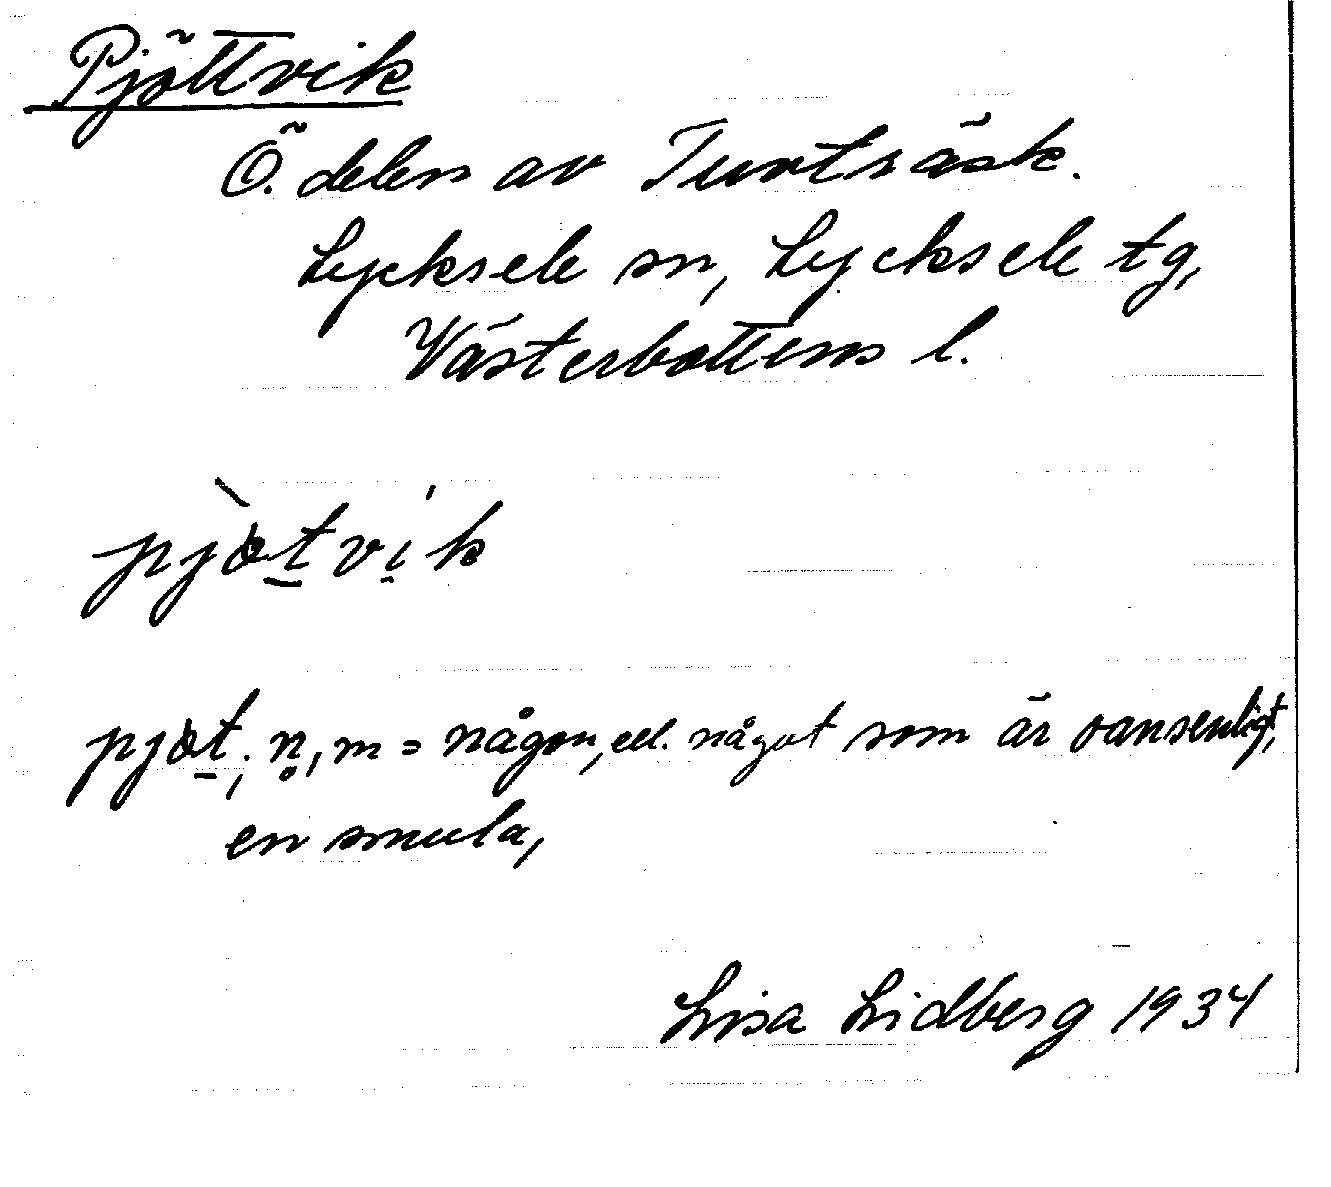 Pjöttvik
Ö. delen av Tuvträsk.
Lycksele sn, Lycksele tg,
Västerbottens l.
pjòtvik
pjòt, n, m = någon, ell. något som är oansenligt,
en smula,
Lisa Lidberg 1934